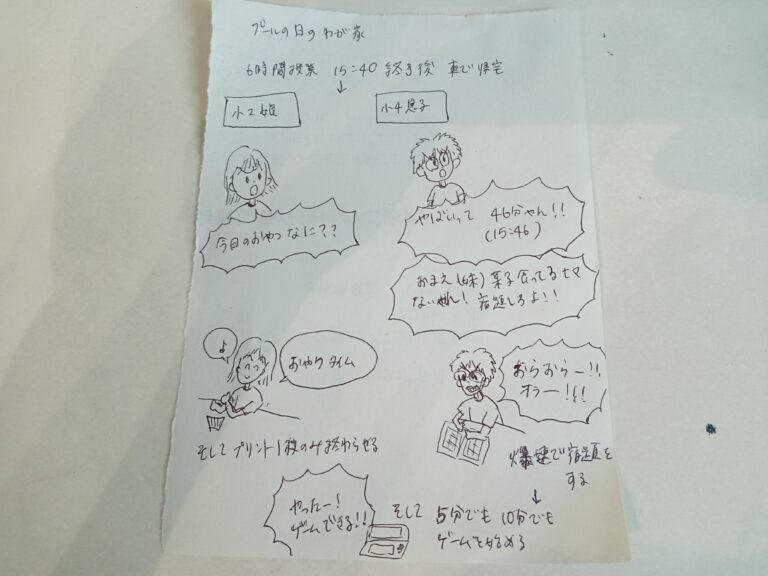 プールの日のわが家
6時間授業 15:40 終了後 車で帰宅
↓
小2娘
小4息子
今日のおやつなに??
やばいって 46分やん!!
(15:46)
おまえ(妹)菓子食ってるヒマ
ないやん! 宿題しろよ!!
♪
おやつタイム
おらおらー!!
オラー!!!
そしてプリント1枚のみ終わらせる
爆速で宿題を
する
↓
やったー!
ゲームできる!!
そして 5分でも 10分でも
ゲームを始める